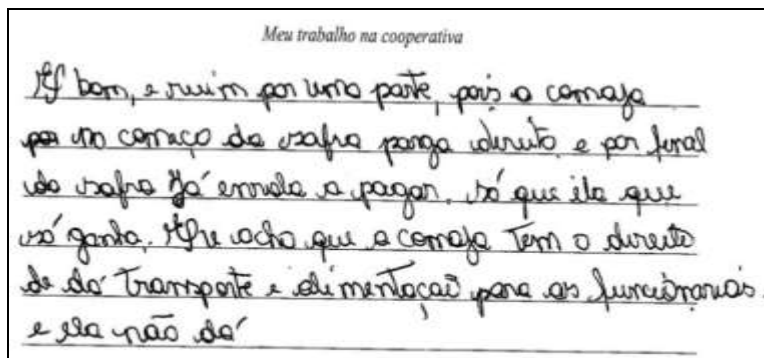 Meu trabalho na cooperativa
É bom, e ruim por uma parte, pois a comaja
por no começo da safra parga direito e por feral
da safra Já enrola a pagar. só que ela que
só ganha. Que acho que a comaja Tem o direito
de dá Transporte e alimentaçaõ para as funcionarias.
e ela não dá